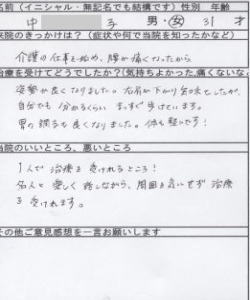 名前（イニシャル・無記名でも結構です）性別 年齢
中 子 男・女 31才
来院のきっかけは？（症状や何で当院を知ったかなど）
介護の仕事を始め、腰が痛くなったから
治療を受けてどうでしたか？(気持ちよかった、痛くないな
姿勢が良くなりました。左肩が下がり気味でしたが、
自分でも分かるくらい まっすぐ歩けています。
胃の調子も良くなりました。体も軽いです！
当院のいいところ、悪いところ
1人で治療を受けれるところ！
先生と楽しく話しながら、周囲を気にせず治療
を受けれます。
その他ご意見感想を一言お願いします